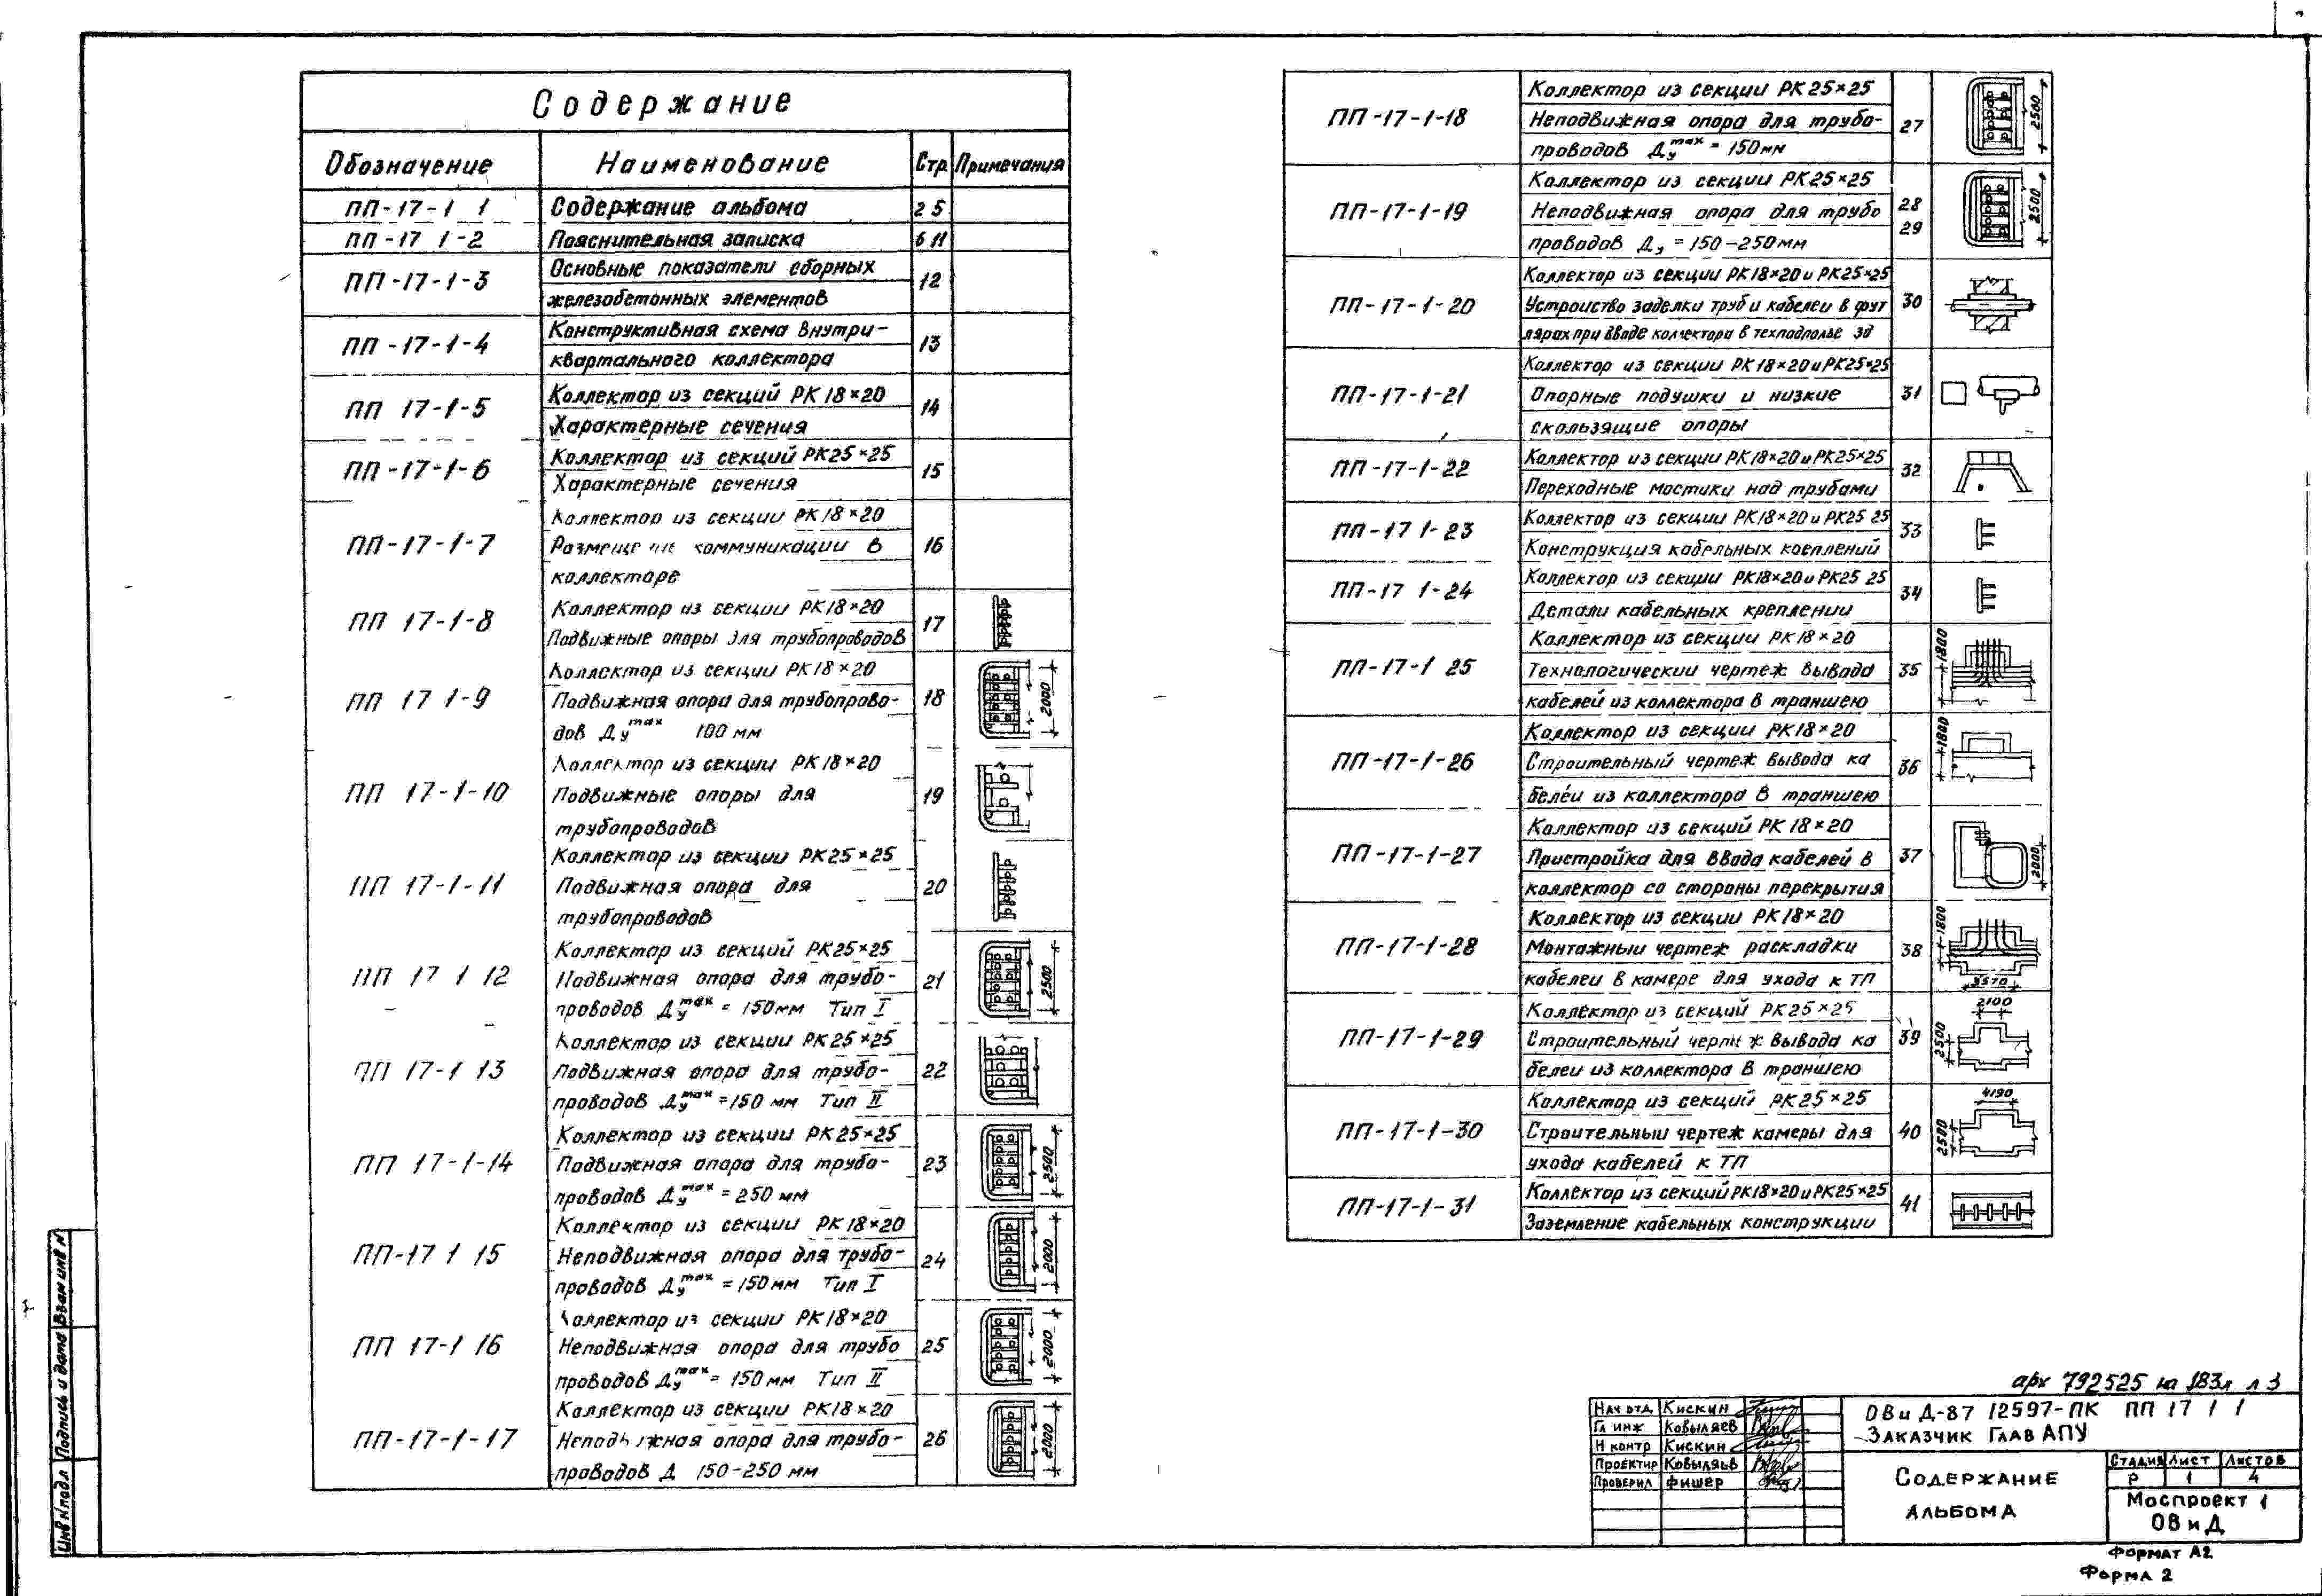 Содержание
Обозначение Наименование Стр. Примечания
ПП-17-1 1 Содержание альбома 2 5
ПП-17 1-2 Пояснительная записка 6 11
ПП-17-1-3 Основные показатели сборных 12
железобетонных элементов
ПП-17-1-4 Конструктивная схема внутри- 13
квартального коллектора
ПП 17-1-5 Коллектор из секций РК 18×20 14
Характерные сечения
ПП-17-1-6 Коллектор из секций РК25×25 15
Характерные сечения
ПП-17-1-7 Коллектор из секции РК 18×20 16
коммуникации в
коллекторе
ПП 17-1-8 Коллектор из секции РК 18×20 17
Подвижные опоры для трубопроводов
ПП 17 1-9 Коллектор из секции РК 18×20 18
Подвижная опора для трубопрово-
дов Ду max 100 мм
2000
ПП 17-1-10 Коллектор из секции РК 18×20 19
Подвижные опоры для
трубопроводов
ПП 17-1-11 Коллектор из секции РК 25×25 20
Подвижная опора для
трубопроводов
ПП 17 1 12 Коллектор из секций РК25×25 21
Подвижная опора для трубо-
проводов Ду max = 150мм Тип I
2500
ПП 17-1 13 Коллектор из секции РК 25×25 22
Подвижная опора для трубо-
проводов Ду max =150 мм Тип II
ПП 17-1-14 Коллектор из секции РК 25×25 23
Подвижная опора для трубо-
проводов Ду max = 250 мм
2500
ПП-17 1 15 Коллектор из секции РК 18×20 24
Неподвижная опора для трубо-
проводов Ду max = 150 мм Тип I
2000
ПП 17-1 16 Коллектор из секции РК 18×20 25
Неподвижная опора для трубо
проводов Ду max = 150 мм Тип II
2000
ПП-17-1-17 Коллектор из секции РК 18×20 26
Неподвижная опора для трубо-
проводов Д 150-250 мм
2000
ПП-17-1-18 Коллектор из секции РК 25×25 27
Неподвижная опора для трубо-
проводов Ду max = 150мм
2500
ПП-17-1-19 Коллектор из секции РК25×25 28
Неподвижная опора для трубо 29
проводов Ду = 150-250мм
2500
ПП-17-1-20 Коллектор из секции РК18×20 и РК25×25 30
Устроиство заделки труб и кабелеи в фут
лярах при вводе коллектора в техподполье зд
ПП-17-1-21 Коллектор из секции РК 18×20 и РК25×25 31
Опорные подушки и низкие
скользящие опоры
ПП-17-1-22 Коллектор из секции РК18×20 и РК25×25 32
Переходные мостики над трубами
ПП-17 1-23 Коллектор из секции РК18×20 и РК25 25 33
Конструкция кабельных креплений
ПП-17 1-24 Коллектор из секции РК18×20 и РК25 25 34
Детали кабельных креплении
ПП-17-1 25 Коллектор из секции РК 18×20 35
Технологическии чертеж вывода
кабелей из коллектора в траншею
1800
ПП-17-1-26 Коллектор из секции РК 18×20 36
Строительный чертеж вывода ка
белеи из коллектора в траншею
1800
ПП-17-1-27 Коллектор из секций РК 18×20 37
Пристройка для ввода кабелей в
коллектор со стороны перекрытия
2000
ПП-17-1-28 Коллектор из секции РК 18×20 38
Монтажныи чертеж раскладки
кабелеи в камере для ухода к ТП
1800
ПП-17-1-29 Коллектор из секций РК 25×25 39
Строительный черт ж вывода ка
белеи из коллектора в траншею
2100
2500
ПП-17-1-30 Коллектор из секций РК 25×25 40
Строительныи чертеж камеры для
ухода кабелей к ТП
4190
2500
ПП-17-1-31 Коллектор из секций РК18×20 и РК25×25 41
Заземление кабельных конструкции
арх 792525 на 183л л 3
Нач отд Кискин
Гл инж Ковыляев
Н контр Кискин
Проектир Ковыляев
Проверил Фишер
ОВиД-87 12597-ПК ПП 17 1 1
Заказчик ГлавАПУ
Содержание
альбома
Стадия Лист Листов
Р 1 4
Моспроект 1
ОВиД
Формат А2
Форма 2
Инв № подл Подпись и дата Взам инв №